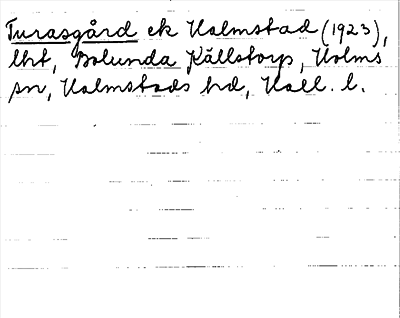 Turasgård ek Halmstad (1923),
lht, Bolunda Källstorp, Holms
sn, Halmstads hd, Hall. l.